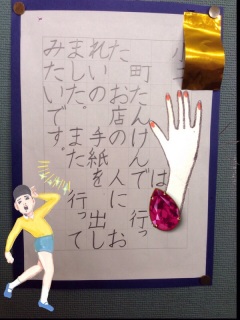 町たんけんで 行っ
た お店の 人に お
れいの 手紙を 出し
ました。また 行って
みたいです。